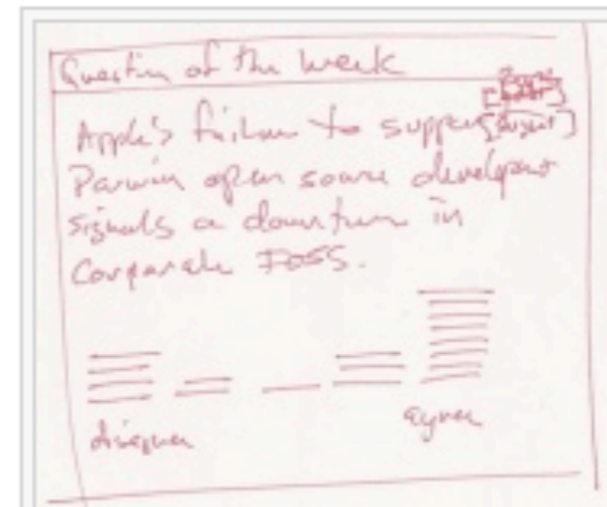 Question of the week
Apple's failure to support
Darwin open source development
signals a downturn in
Corporate FOSS.
disagree
agree